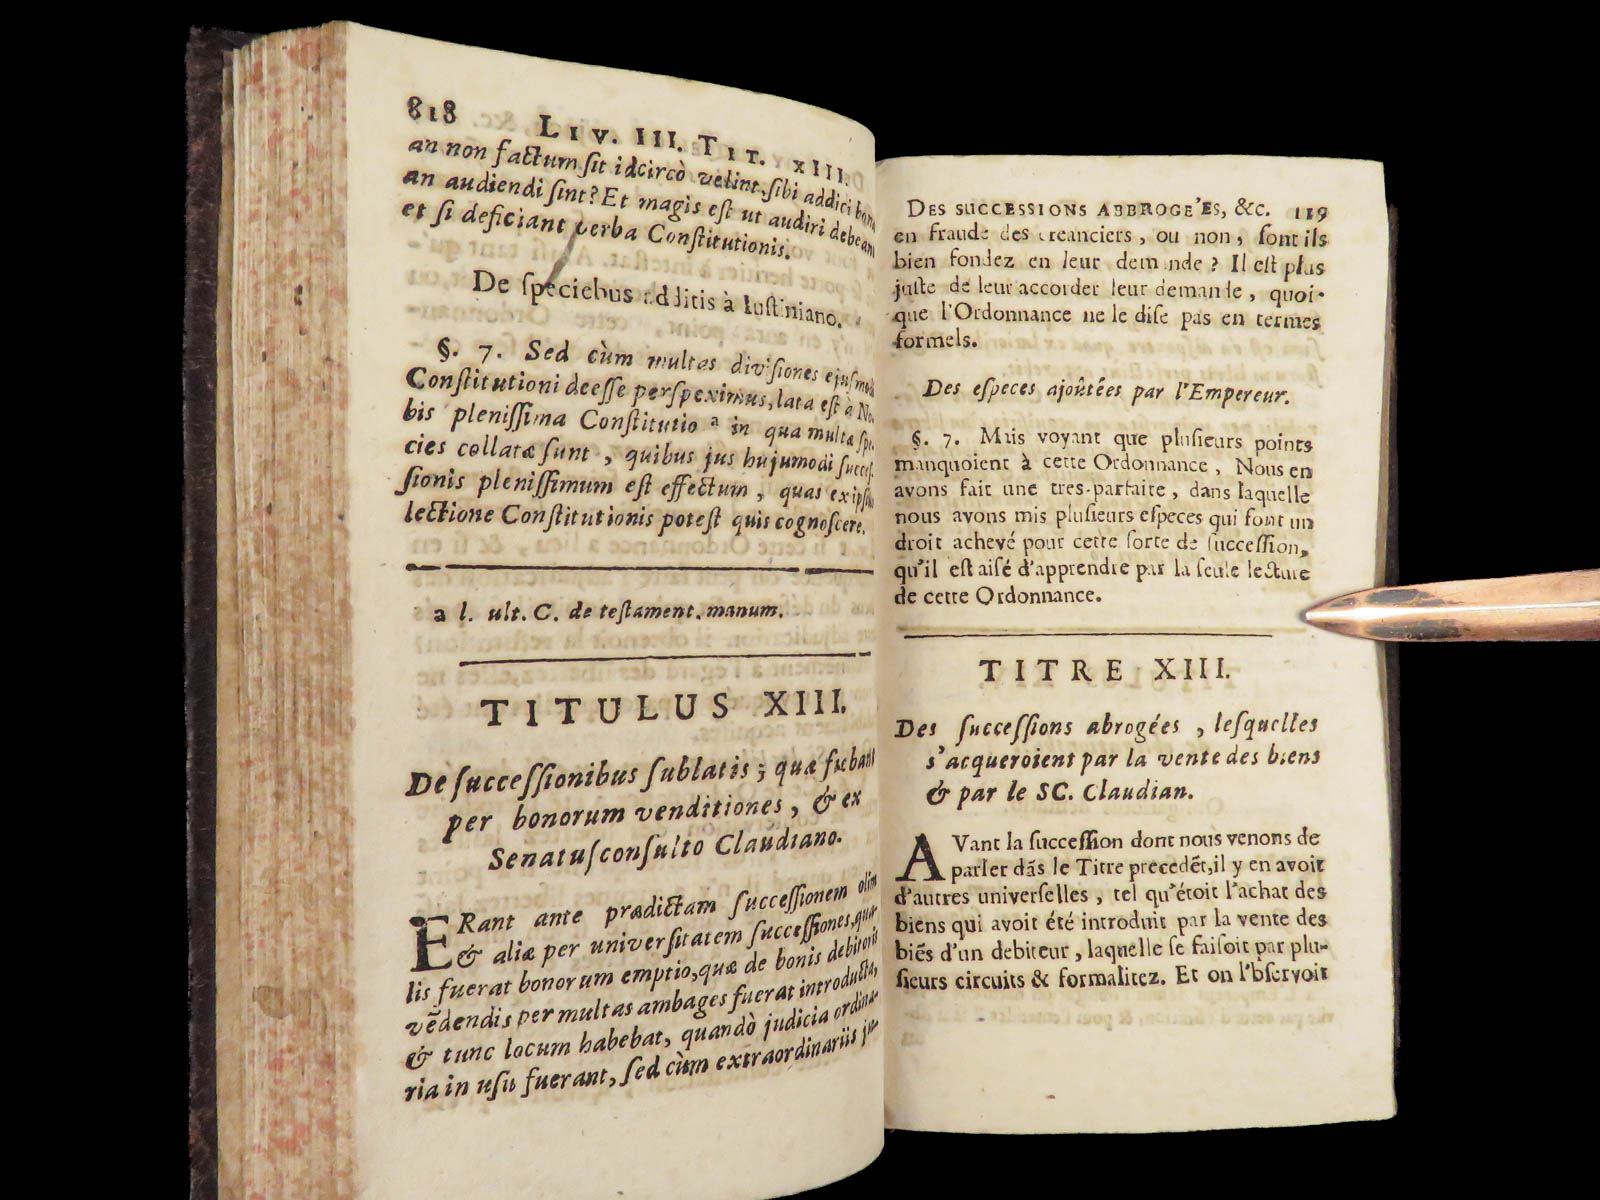 818 LIV. III. TIT. XIII.
an non factum ſit idcircò velint, ſibi addici bona
an audiendi ſint? Et magis eſt ut audiri debeant
et ſi deficiant verba Conſtitutionis.
De ſpeciebus additis à Iuſtiniano.
§. 7. Sed cùm multas diviſiones ejuſmodi
Conſtitutioni deeſſe perſpeximus, lata eſt à No-
bis pleniſſima Conſtitutio a in qua multæ ſpe-
cies collatæ ſunt, quibus jus hujumodi ſucceſ-
ſionis pleniſſimum eſt effectum, quas ex ipſa
lectione Conſtitutionis poteſt quis cognoſcere.
a l. ult. C. de teſtament. manum.
TITULUS XIII.
De ſucceſſionibus ſublatis; quæ fiebant
per bonorum venditiones, & ex
Senatuſconſulto Claudiano.
ERant ante prædictam ſucceſſionem olim
& aliæ per univerſitatem ſucceſſiones, qua-
lis fuerat bonorum emptio, quæ de bonis debitoris
vēdendis per multas ambages fuerat introducta,
& tunc locum habebat, quandò judicia ordina-
ria in uſu fuerant, ſed cùm extraordinariis ju-
DES SUCCESSIONS ABBROGE'ES, &c. 119
en fraude des creanciers, ou non, ſont ils
bien fondez en leur demande? Il eſt plus
juſte de leur accorder leur demande, quoi-
que l'Ordonnance ne le diſe pas en termes
formels.
Des eſpeces ajoûtées par l'Empereur.
§. 7. Mais voyant que pluſieurs points
manquoient à cette Ordonnance, Nous en
avons fait une tres-parfaite, dans laquelle
nous avons mis pluſieurs eſpeces qui font un
droit achevé pour cette ſorte de ſucceſſion,
qu'il eſt aiſé d'apprendre par la ſeule lecture
de cette Ordonnance.
TITRE XIII.
Des ſucceſſions abrogées, leſquelles
s'acqueroient par la vente des biens
& par le SC. Claudian.
AVant la ſucceſſion dont nous venons de
parler dãs le Titre precedẽt, il y en avoit
d'autres univerſelles, tel qu'étoit l'achat des
biens qui avoit été introduit par la vente des
biẽs d'un debiteur, laquelle ſe faiſoit par plu-
ſieurs circuits & formalitez. Et on l'bſervoit